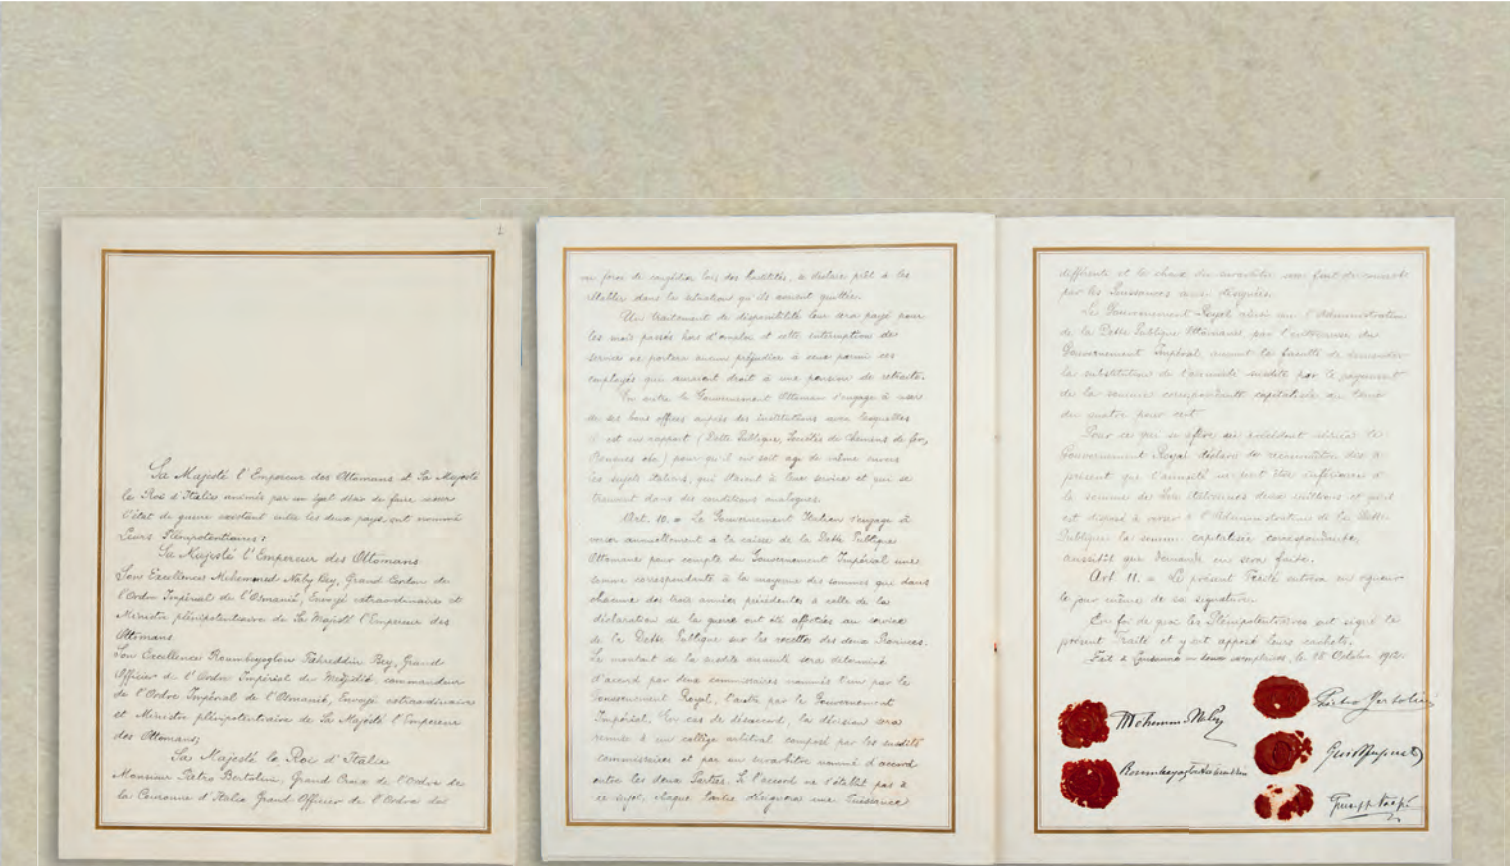 1
Sa Majesté l'Empereur des Ottomans et Sa Majesté
le Roi d'Italie animés par un égal désir de faire cesser
l'état de guerre existant entre les deux pays, ont nommé
Leurs Plénipotentiaires:
Sa Majesté l'Empereur des Ottomans
Son Excellence Mehemmed Naby Bey, Grand Cordon de
l'Ordre Impérial de l'Osmanié, Envoyé extraordinaire et
Ministre plénipotentiaire de Sa Majesté l'Empereur des
Ottomans
Son Excellence Roumbeyoglou Fahreddin Bey, Grand
Officier de l'Ordre Impérial du Medjidié, commandeur
de l'Ordre Impérial de l'Osmanié, Envoyé extraordinaire
et Ministre plénipotentiaire de Sa Majesté l'Empereur
des Ottomans;
Sa Majesté le Roi d'Italie
Monsieur Pietro Bertolini, Grand Croix de l'Ordre de
la Couronne d'Italie Grand Officier de l'Ordre des
ou forcé de congédier lors des hostilités, se déclare prêt à les
établir dans la situation qu'ils avaient quittée.
Un traitement de disponibilité leur sera payé pour
les mois passés hors d'emploi et cette interruption de
service ne portera aucun préjudice à ceux parmi ces
employés qui auraient droit à une pension de retraite.
En outre le Gouvernement Ottoman s'engage à user
de ses bons offices auprès des institutions avec lesquelles
il est en rapport (Dette Publique, Sociétés de Chemins de fer,
Banques etc) pour qu'il en soit agi de même envers
les sujets italiens, qui étaient à leur service et qui se
trouvent dans des conditions analogues.
Art. 10. = Le Gouvernement Italien s'engage à
verser annuellement à la caisse de la Dette Publique
Ottomane pour compte du Gouvernement Impérial une
somme correspondante à la moyenne des sommes que dans
chacune des trois années précédentes à celle de la
déclaration de la guerre ont été affectées au service
de la Dette Publique sur les recettes des deux Provinces.
Le montant de la susdite annuité sera déterminé
d'accord par deux commissaires nommés l'un par le
Gouvernement Royal, l'autre par le Gouvernement
Impérial. En cas de désaccord, la décision sera
remise à un collège arbitral composé par les susdits
commissaires et par un surarbitre nommé d'accord
entre les deux Parties. Si l'accord ne s'établit pas à
ce sujet, chaque Partie désignera une Puissance
différente et le choix du surarbitre sera fait de concert
par les Puissances ainsi désignées.
Le Gouvernement Royal ainsi que l'Administration
de la Dette Publique Ottomane, par l'entremise du
Gouvernement Impérial, auront la faculté de demander
la substitution de l'annuité susdite par le payement
de la somme correspondante capitalisée au taux
du quatre pour cent
Pour ce qui se réfère au précédent alinéa le
Gouvernement Royal déclare de reconnaître dès à
présent que l'annuité ne peut être inférieure à
la somme de Lire italiennes deux millions et qu'il
est disposé à verser à l'Administration de la Dette
Publique la somme capitalisée correspondante,
aussitôt que demande en sera faite.
Art. 11. = Le présent Traité entrera en vigueur
le jour même de sa signature.
En foi de quoi les Plénipotentiaires ont signé le
présent Traité et y ont apposé leurs cachets.
Fait à Lausanne en deux exemplaires, le 18 Octobre 1912.
Pietro Bertolini
Mehemmed Naby
Roumbeyoglou Fahreddin